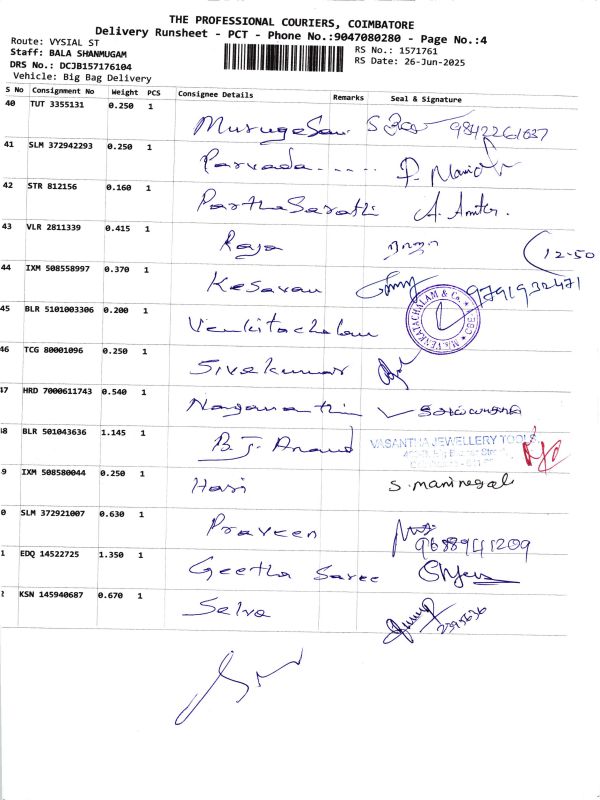 THE PROFESSIONAL COURIERS, COIMBATORE
Delivery Runsheet - PCT - Phone No.:9047080280 - Page No.:4
Route: VYSIAL ST
RS No.: 1571761
Staff: BALA SHANMUGAM
RS Date: 26-Jun-2025
DRS No.: DCJB157176104
Vehicle: Big Bag Delivery
S No Consignment No Weight PCS Consignee Details Remarks Seal & Signature
40 TUT 3355131 0.250 1 MurugeSan 9842261037
41 SLM 372942293 0.250 1 Parvada..... P. Mani
42 STR 812156 0.160 1 ParthaSarathi
43 VLR 2811339 0.415 1 Raja ராஜா 12-50
44 IXM 508558997 0.370 1 Kesavan 9791932471
45 BLR 5101003306 0.200 1 Venkitachalam
46 TCG 80001096 0.250 1 Sivakumar
47 HRD 7000611743 0.540 1
48 BLR 501043636 1.145 1 B.J. Anand VASANTHA JEWELLERY TOOLS
9 IXM 508580044 0.250 1 Hari S. maninegal
0 SLM 372921007 0.630 1 Praveen 9688941209
1 EDQ 14522725 1.350 1 Geetha Saree
2 KSN 145940687 0.670 1 Selva